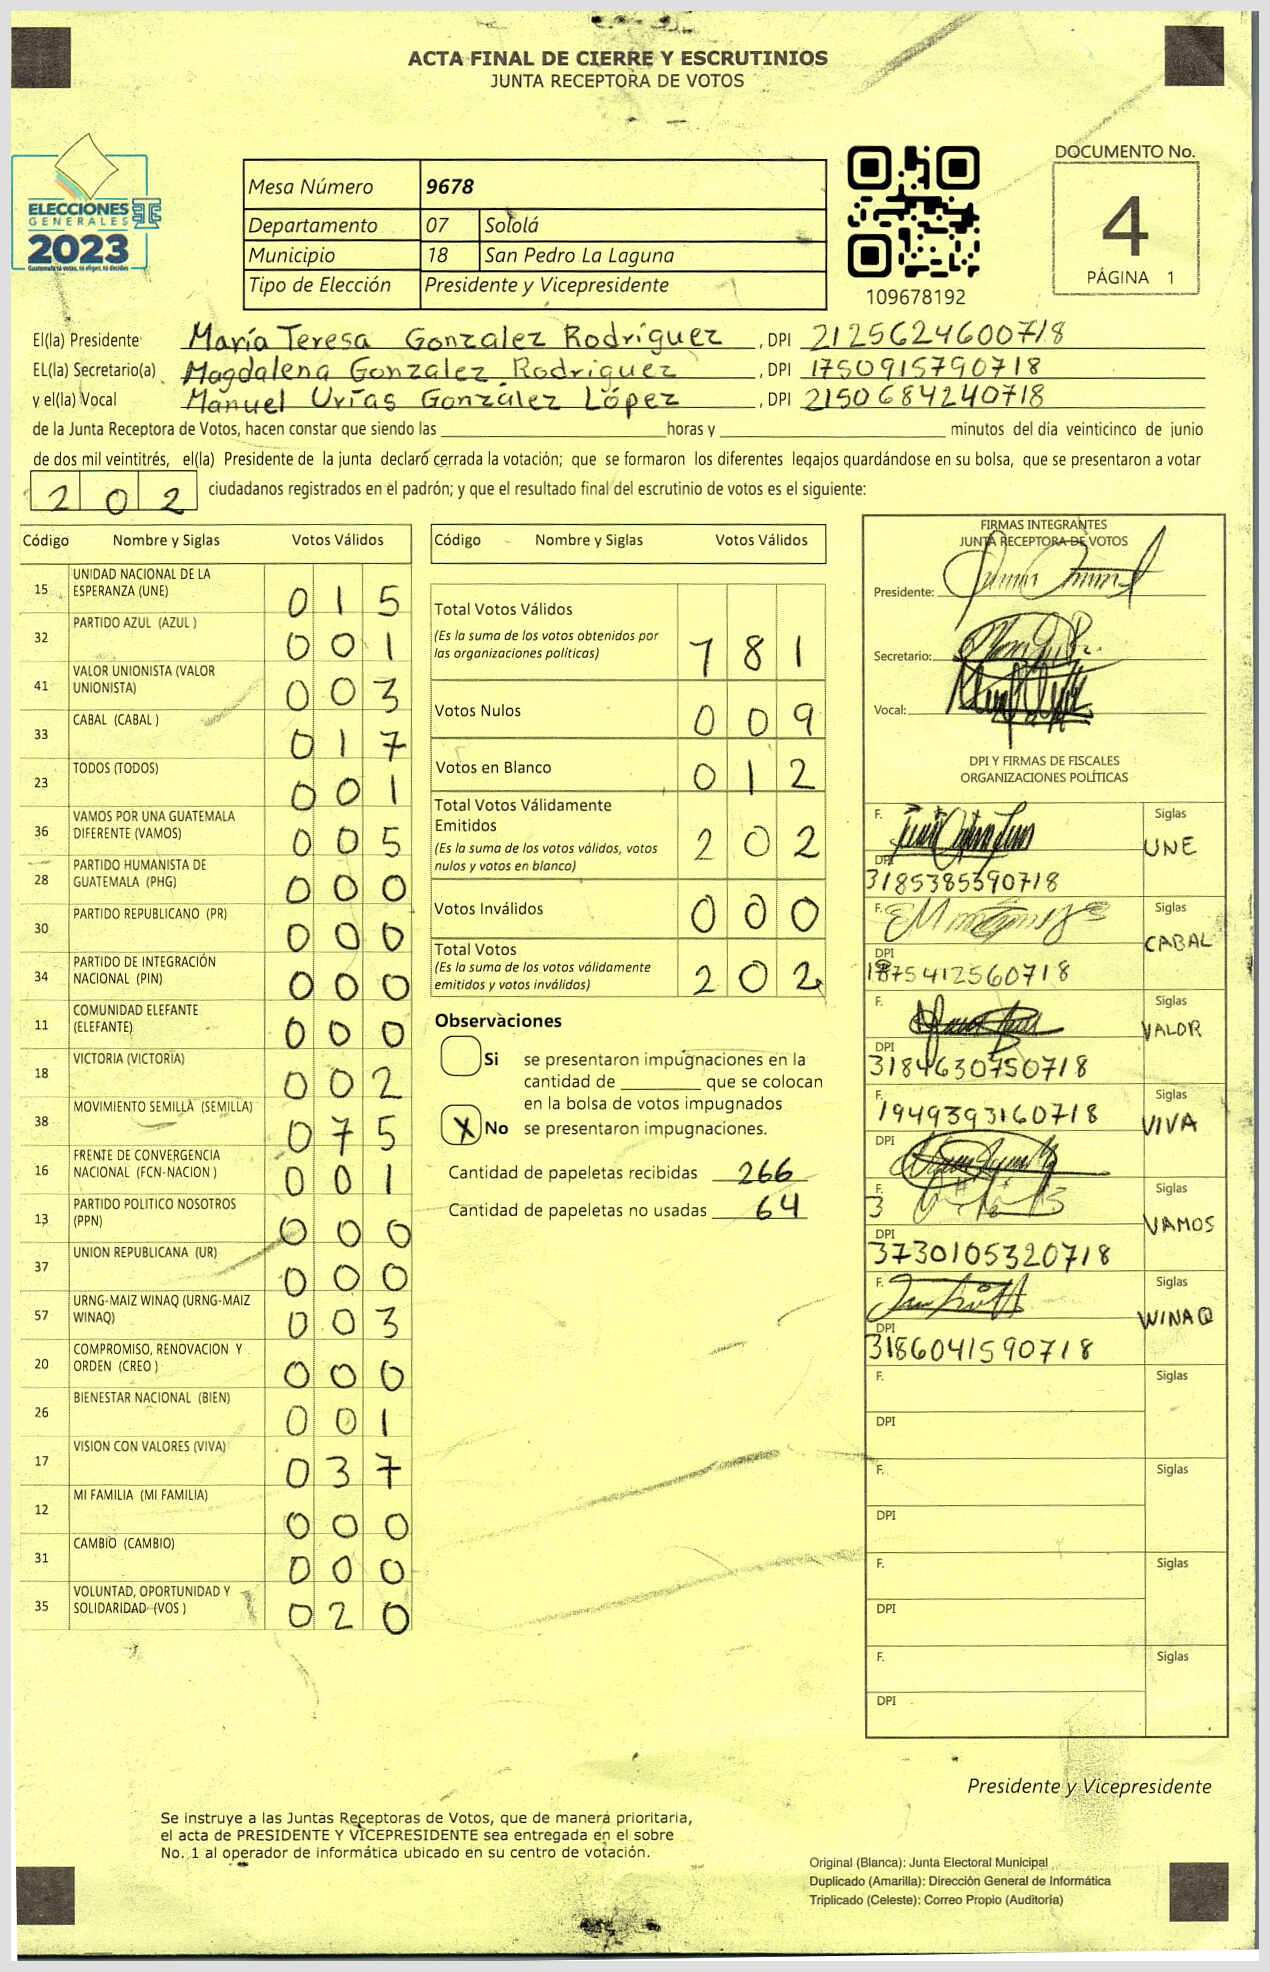 ACTA FINAL DE CIERRE Y ESCRUTINIOS
JUNTA RECEPTORA DE VOTOS
ELECCIONES
GENERALES
2023
Guatemala tú votas, tú eliges, tú decides
Mesa Número 9678
Departamento 07 Sololá
Municipio 18 San Pedro La Laguna
Tipo de Elección Presidente y Vicepresidente
109678192
DOCUMENTO No.
4
PÁGINA 1
El(la) Presidente María Teresa Gonzalez Rodríguez, DPI 2125624600718
EL(la) Secretario(a) Magdalena Gonzalez Rodriguez, DPI 1750915790718
y el(la) Vocal Manuel Urías González López, DPI 2150684240718
de la Junta Receptora de Votos, hacen constar que siendo las ____ horas y ____ minutos del día veinticinco de junio
de dos mil veintitrés, el(la) Presidente de la junta declaró cerrada la votación; que se formaron los diferentes legajos guardándose en su bolsa, que se presentaron a votar
202 ciudadanos registrados en el padrón; y que el resultado final del escrutinio de votos es el siguiente:
Código Nombre y Siglas Votos Válidos
15 UNIDAD NACIONAL DE LA ESPERANZA (UNE) 015
32 PARTIDO AZUL (AZUL ) 001
41 VALOR UNIONISTA (VALOR UNIONISTA) 003
33 CABAL (CABAL ) 017
23 TODOS (TODOS) 001
36 VAMOS POR UNA GUATEMALA DIFERENTE (VAMOS) 005
28 PARTIDO HUMANISTA DE GUATEMALA (PHG) 000
30 PARTIDO REPUBLICANO (PR) 000
34 PARTIDO DE INTEGRACIÓN NACIONAL (PIN) 000
11 COMUNIDAD ELEFANTE (ELEFANTE) 000
18 VICTORIA (VICTORIA) 002
38 MOVIMIENTO SEMILLA (SEMILLA) 075
16 FRENTE DE CONVERGENCIA NACIONAL (FCN-NACION ) 001
13 PARTIDO POLITICO NOSOTROS (PPN) 000
37 UNION REPUBLICANA (UR) 000
57 URNG-MAIZ WINAQ (URNG-MAIZ WINAQ) 003
20 COMPROMISO, RENOVACION Y ORDEN (CREO ) 000
26 BIENESTAR NACIONAL (BIEN) 001
17 VISION CON VALORES (VIVA) 037
12 MI FAMILIA (MI FAMILIA) 000
31 CAMBIO (CAMBIO) 000
35 VOLUNTAD, OPORTUNIDAD Y SOLIDARIDAD (VOS ) 020
Código Nombre y Siglas Votos Válidos
Total Votos Válidos 181
(Es la suma de los votos obtenidos por
las organizaciones políticas)
Votos Nulos 009
Votos en Blanco 012
Total Votos Válidamente
Emitidos 202
(Es la suma de los votos válidos, votos
nulos y votos en blanco)
Votos Inválidos 000
Total Votos 202
(Es la suma de los votos válidamente
emitidos y votos inválidos)
Observaciones
Si se presentaron impugnaciones en la
cantidad de ____ que se colocan
en la bolsa de votos impugnados
X No se presentaron impugnaciones.
Cantidad de papeletas recibidas 266
Cantidad de papeletas no usadas 64
FIRMAS INTEGRANTES
JUNTA RECEPTORA DE VOTOS
Presidente:
Secretario:
Vocal:
DPI Y FIRMAS DE FISCALES
ORGANIZACIONES POLÍTICAS
F. Siglas UNE
DPI 3185385390718
F. Siglas CABAL
DPI 1875412560718
F. Siglas VALOR
DPI 3184630750718
F. 1949393160718 Siglas VIVA
DPI
F. 3 Siglas VAMOS
DPI 3730105320718
F. Siglas WINAQ
DPI 3186041590718
F. Siglas
DPI
F. Siglas
DPI
F. Siglas
DPI
F. Siglas
DPI
Presidente y Vicepresidente
Se instruye a las Juntas Receptoras de Votos, que de manera prioritaria,
el acta de PRESIDENTE Y VICEPRESIDENTE sea entregada en el sobre
No. 1 al operador de informática ubicado en su centro de votación.
Original (Blanca): Junta Electoral Municipal
Duplicado (Amarilla): Dirección General de Informática
Triplicado (Celeste): Correo Propio (Auditoría)